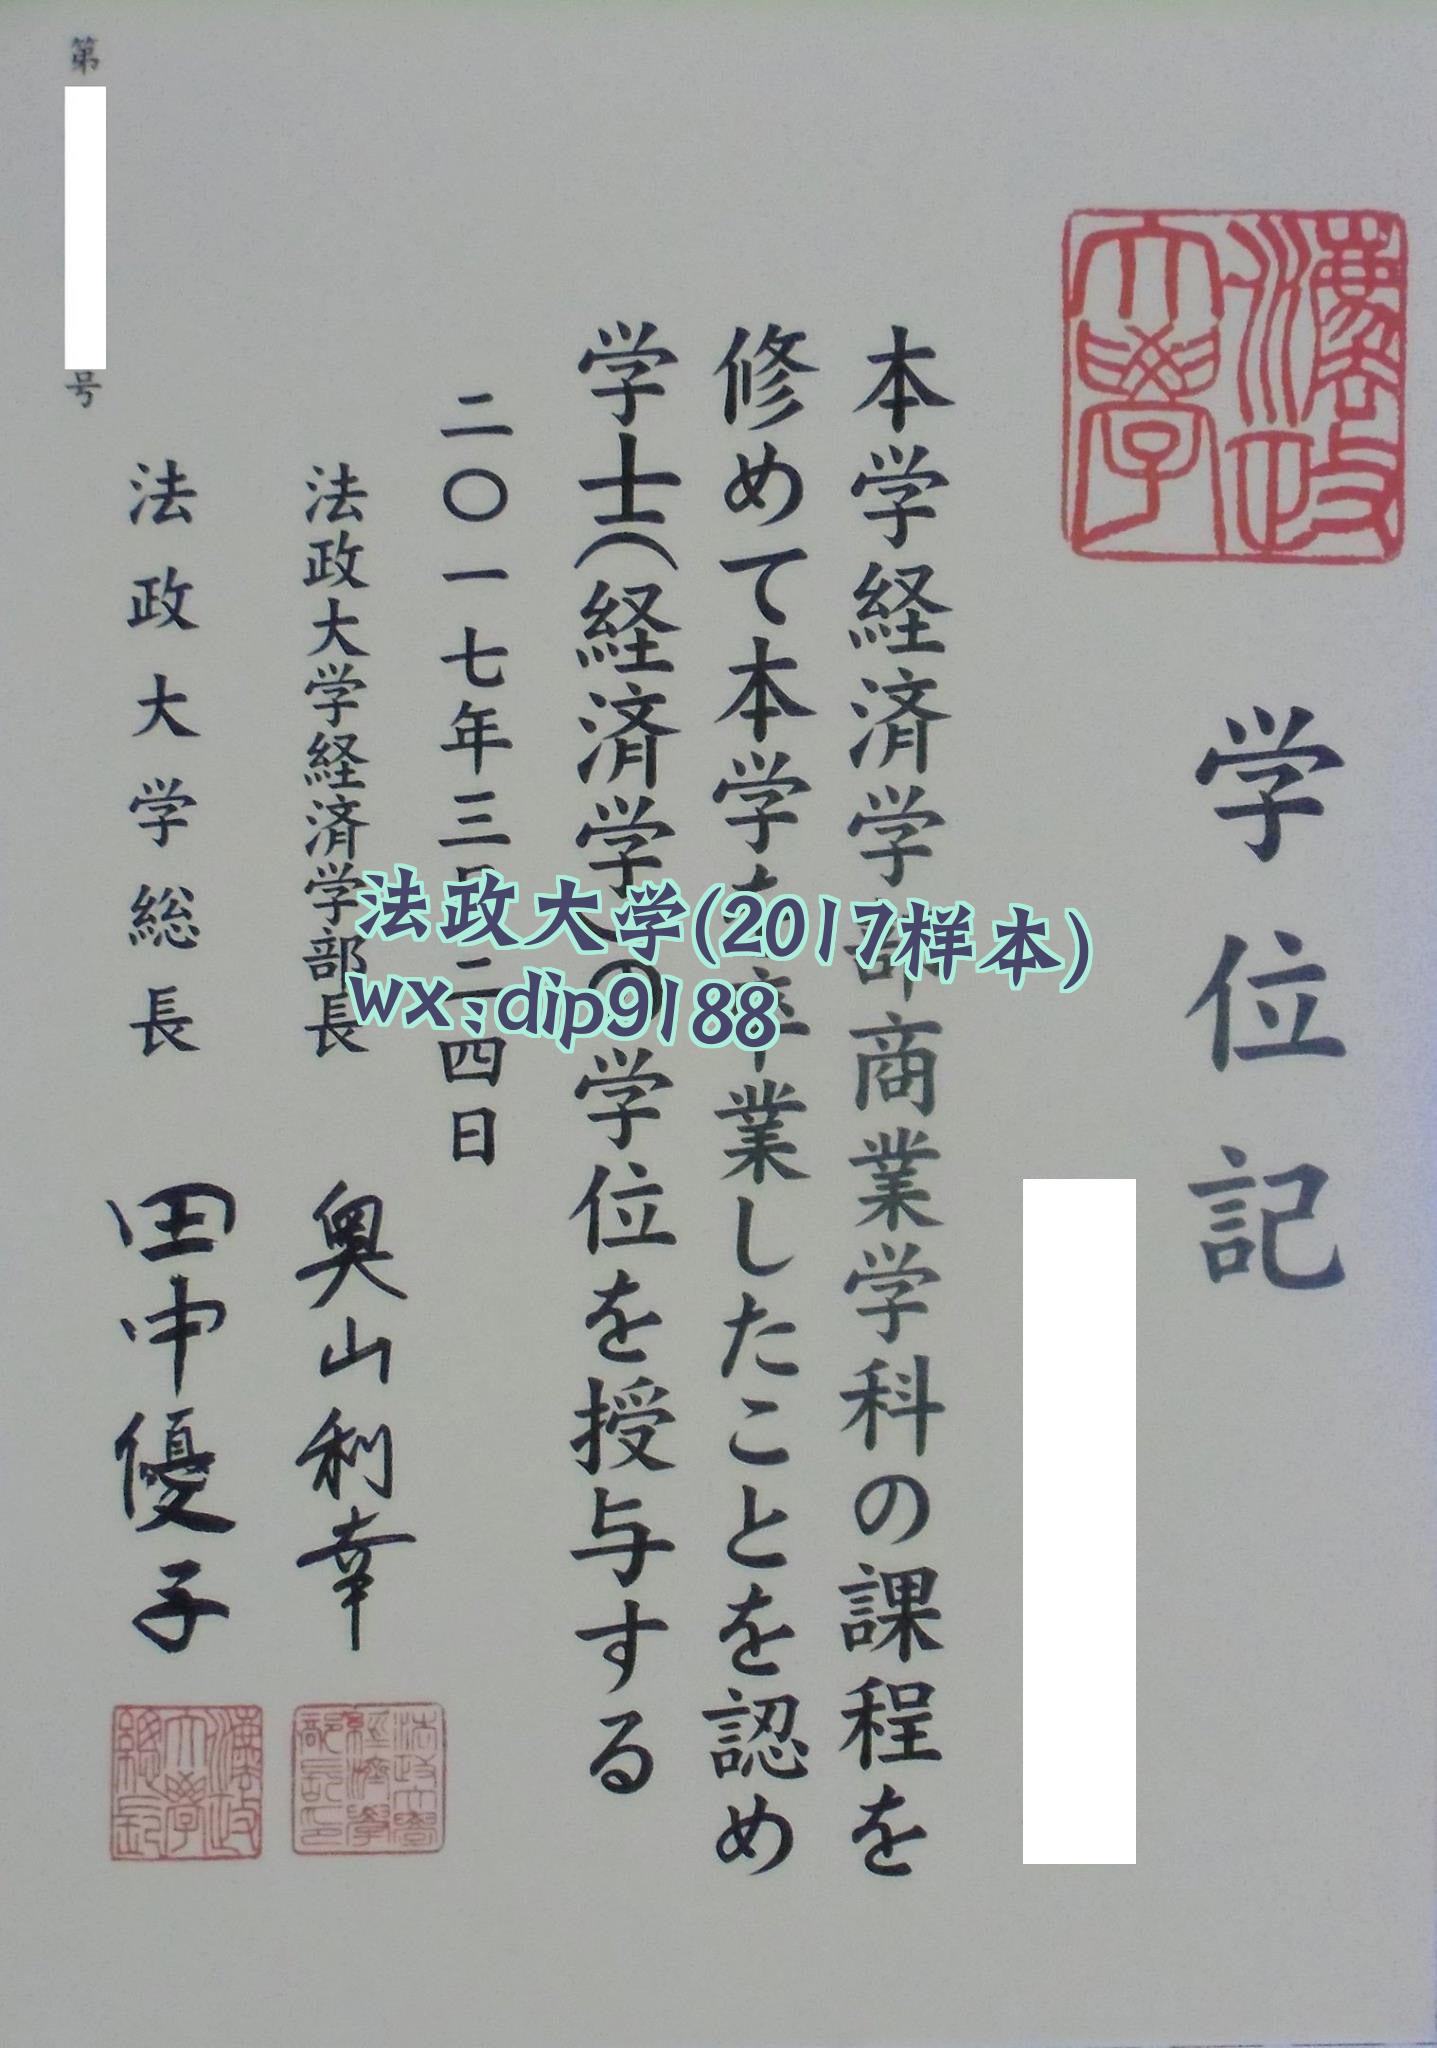 学位記
本学経済学部商業学科の課程を
修めて本学を卒業したことを認め
学士(経済学)の学位を授与する
二〇一七年三月二四日
法政大学経済学部長 奥山利幸
法政大学総長 田中優子
第
号
法政大学
法政大学(2017样本)
wx:dip9188